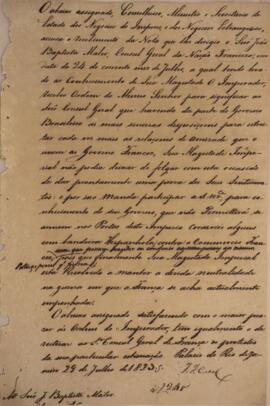 O abaixo assignado, Conselheiro, Ministro e Secretario de
Estado dos Negocios do Imperio, e dos Negocios Estrangeiros,
accusa o recebimento da Nota que lhe dirigio o Snr. João
Baptista Maler, Consul Geral da Nação Franceza, em
data de 24 do corrente mez de Julho, a qual tendo levado
ao Conhecimento de Sua Magestade O Imperador,
Recebeo Ordem do Mesmo Senhor para significar ao
Snr. Consul Geral que havendo da parte do Governo
Brasileiro as mais sinceras disposições para estreitar
cada vez mais as relações de amizade que o
unem ao Governo Francez, Sua Magestade Imperial
não podia deixar de folgar com esta occasião
de dar promptamente uma prova dos Seus Sentimentos
e por isso Manda participar a
conhecimento do seu Governo, que não Permittirá se
armem nos Portos deste Imperio Corsarios alguns
com bandeira Hespanhola, contra o Commercio Fran
que finalmente Sua Magestade Imperial
está Resolvido a manter a devida neutralidade
na guerra em que a França se acha actualmente
empenhada.
O abaixo assignado satisfazendo com o maior prazer
às Ordens do Imperador, tem igualmente a de
reiterar ao Snr. Consul Geral da França os protestos
da sua particular estimação. Palacio do Rio de Janeiro
29 de Julho de 1823
Ao Snr. J. Baptista Maler